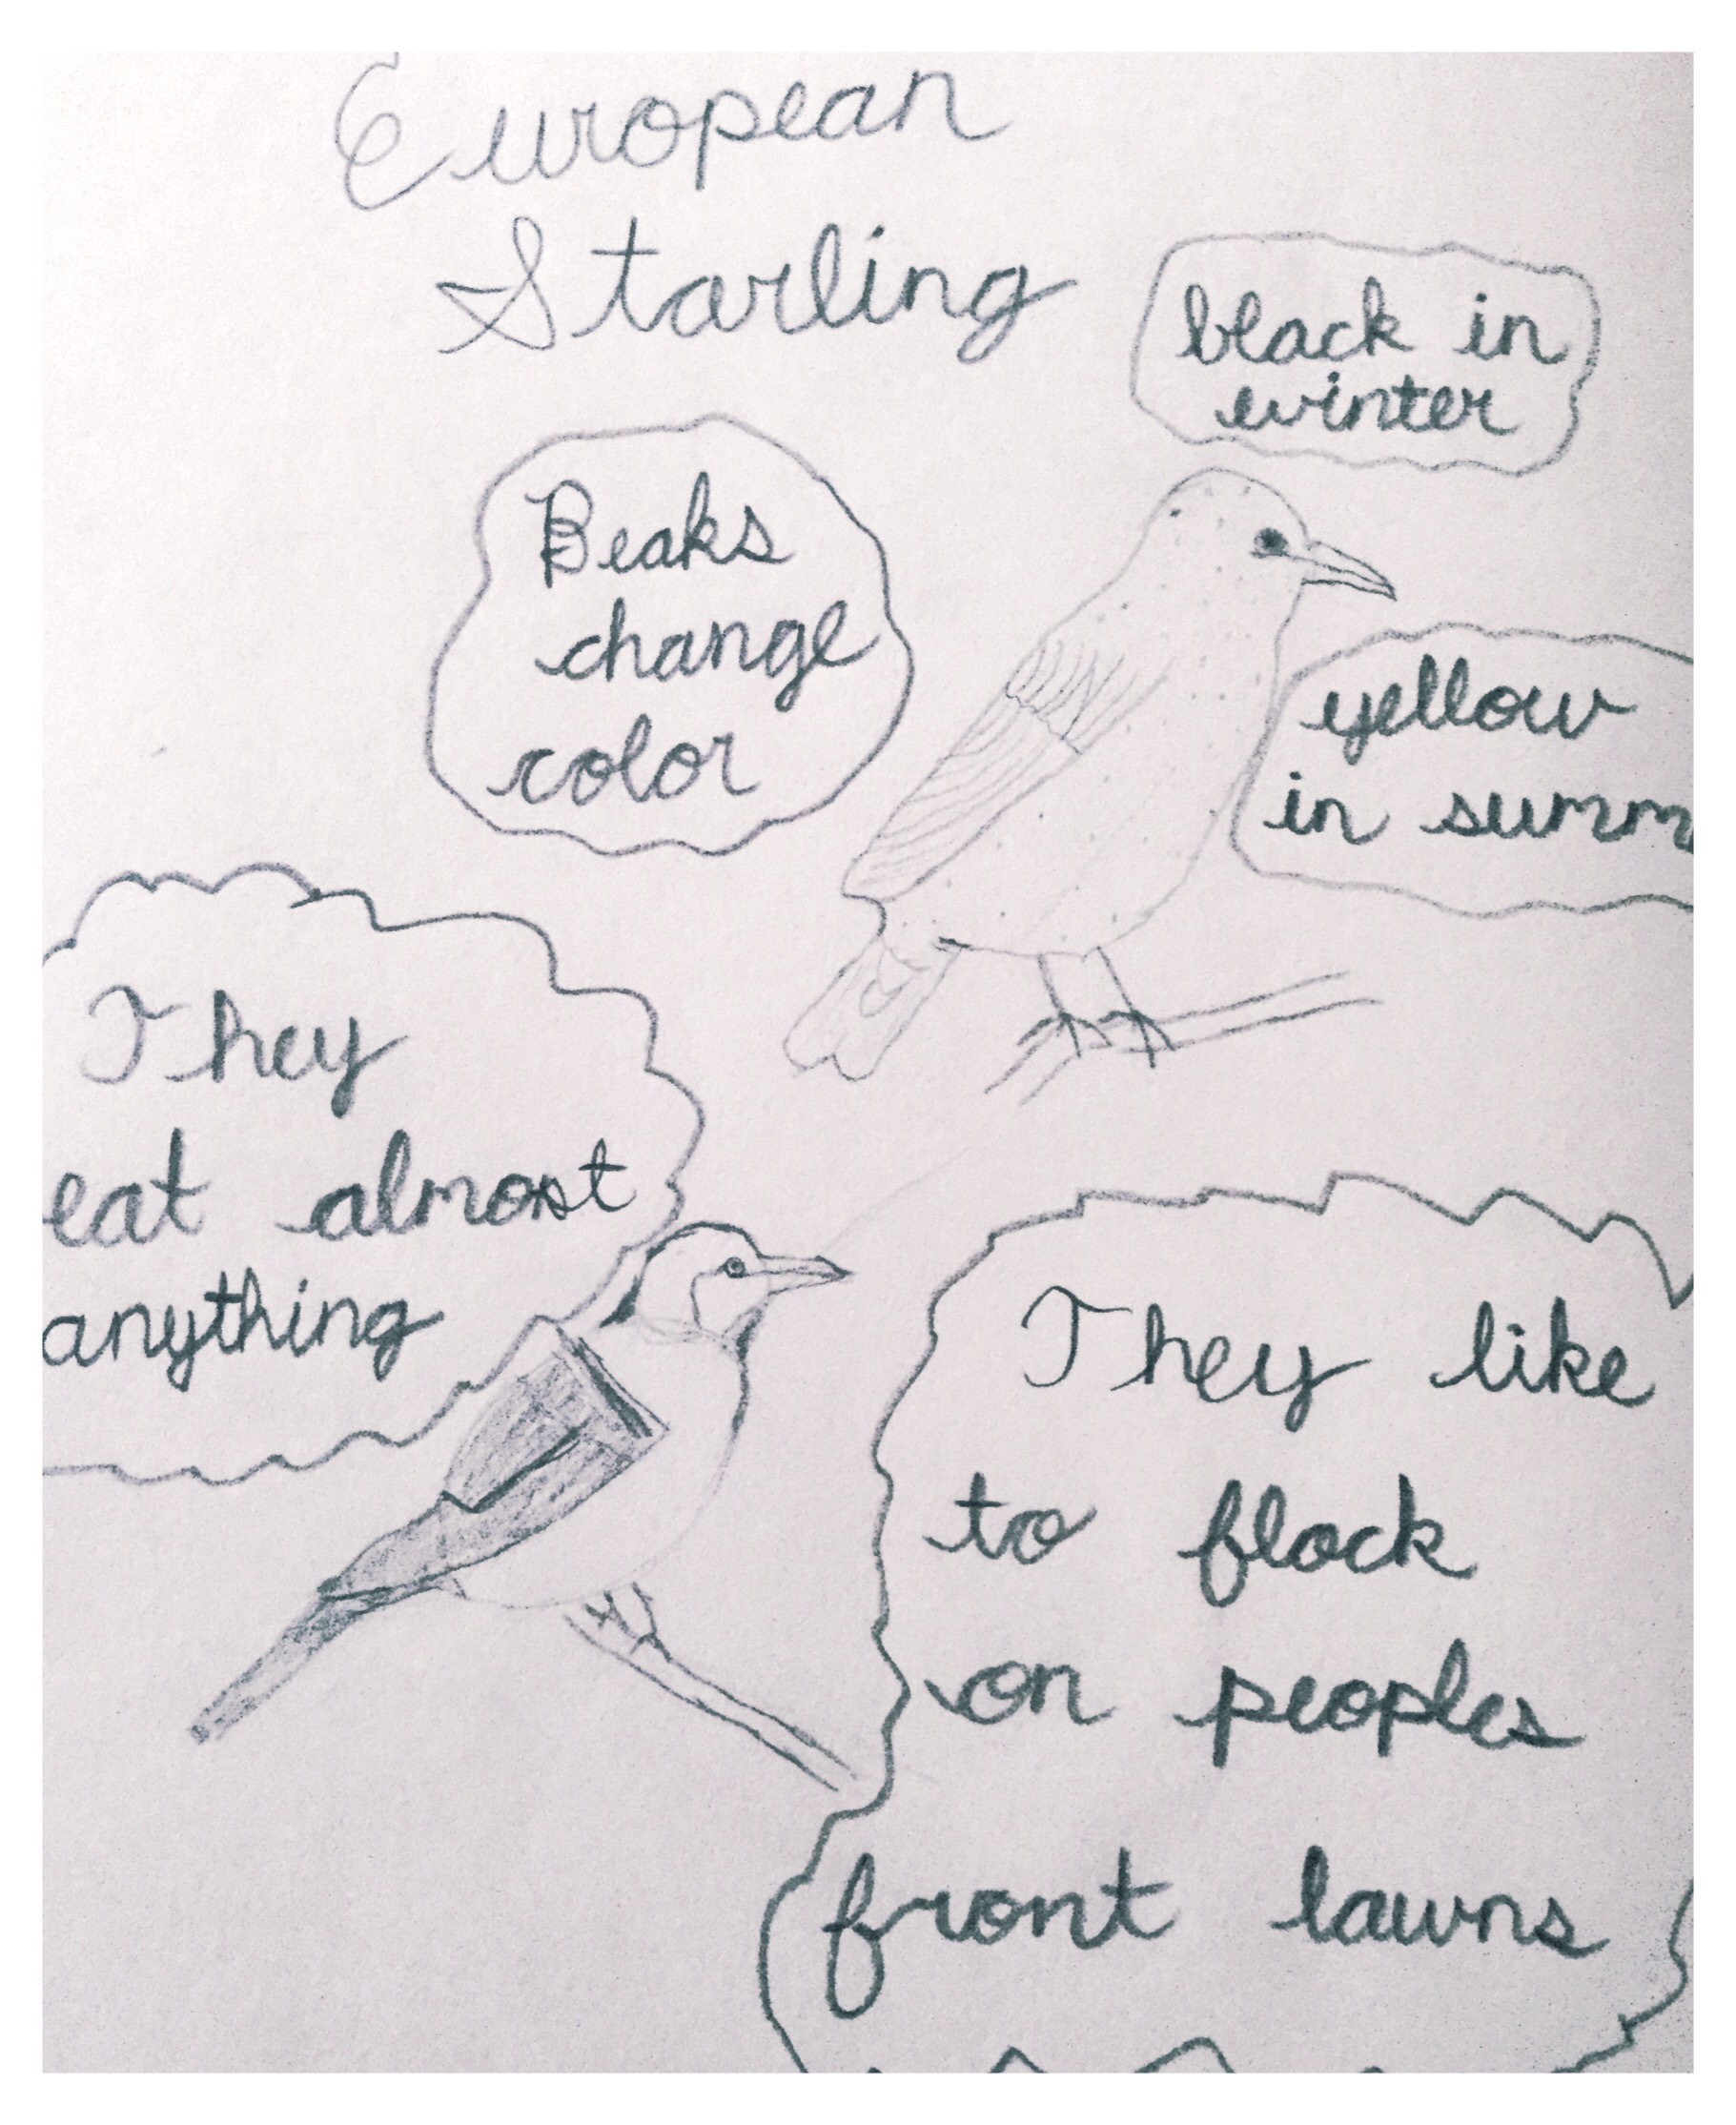 European
Starling
black in
winter
Beaks
change
color
yellow
in summ
They
eat almost
anything
They like
to flock
on peoples
front lawns